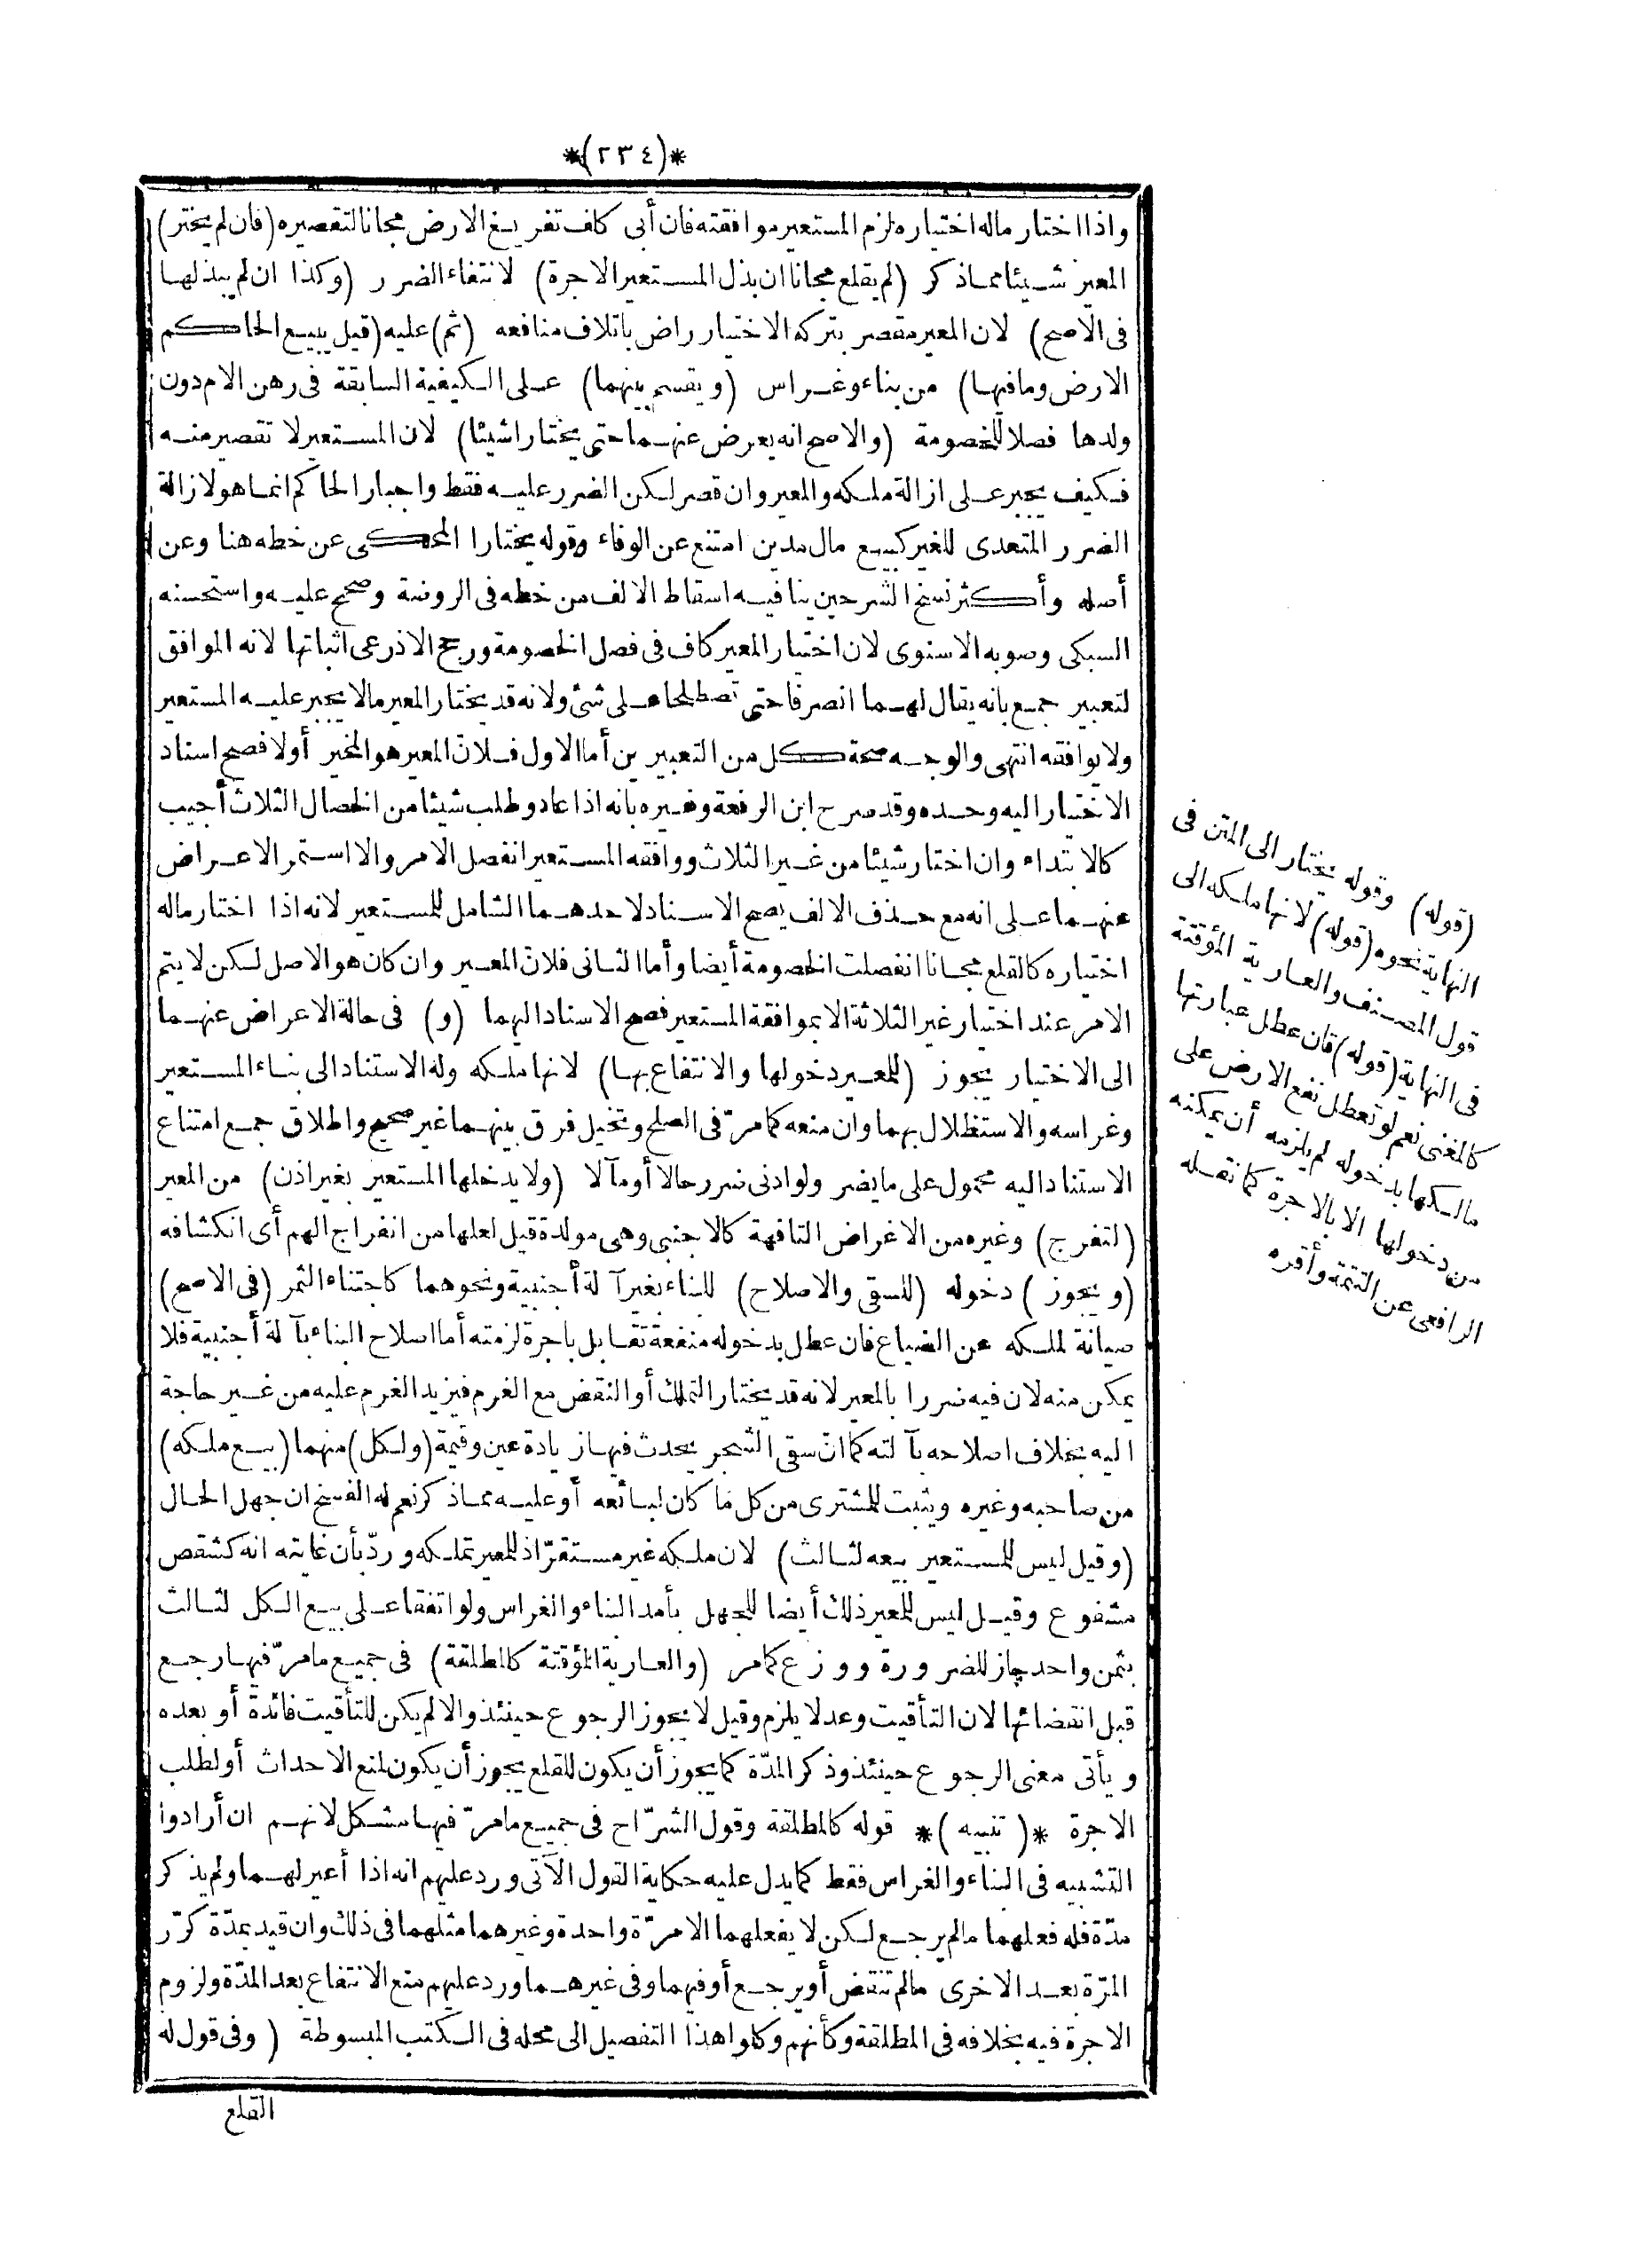 *(٢٣٤)*
واذا اختار ماله اختياره لزم المستعير موافقته فان أبى كلف تفريغ الارض مجانا لتقصيره (فان لم يختر)
المعير شيئا مماذكر (لم يقلع مجانا ان بذل المستعير الاجرة) لانتفاء الضرر (وكذا ان لم يبذلها
فى الاصح) لان المعير مقصر بتركه الاختيار راض باتلاف منافعه (ثم) عليه (قيل يبيع الحاكم
الارض ومافيها) من بناء وغراس (ويقسم بينهما) على الكيفية السابقة فى رهن الام دون
ولدها فصلا للخصومة (والاصح انه يعرض عنهما حتى يختارا شيئا) لان المستعير لا تقصير منه
فكيف يجبر على ازالة ملكه والمعير وان قصر لكن الضرر عليه فقط واجبار الحاكم انما هو لازالة
الضرر المتعدى للغير كبيع مال مدين امتنع عن الوفاء وقوله يختارا المحكى عن خطه هنا وعن
أصله وأكثر نسخ الشرحين ينافيه اسقاط الالف من خطه فى الروضة وصحح عليه واستحسنه
السبكى وصوبه الاسنوى لان اختيار المعير كاف فى فصل الخصومة ورجح الاذرعى اثباتها لانه الموافق
لتعبير جمع بانه يقال لهما انصرفا حتى تصطلحا على شئ ولانه قد يختار المعير مالا يجبر عليه المستعير
ولا يوافقه انتهى والوجه صحة كل من التعبيرين أما الاول فلانّ المعير هو المخير أولا فصح اسناد
الاختيار اليه وحده وقد صرح ابن الرفعة وغيره بانه اذا عاد وطلب شيئا من الخصال الثلاث أجيب
كالابتداء وان اختار شيئا من غير الثلاث ووافقه المستعير انفصل الامر والا استمر الاعراض
عنهما على انه مع حذف الالف يصح الاسناد لاحدهما الشامل للمستعير لانه اذا اختار ماله
اختياره كالقلع مجانا انفصلت الخصومة أيضا وأما الثانى فلانّ المعير وان كان هو الاصل لكن لا يتم
الامر عند اختيار غير الثلاثة الا بموافقة المستعير فصح الاسناد اليهما (و) فى حالة الاعراض عنهما
الى الاختيار يجوز (للمعير دخولها والانتفاع بها) لانها ملكه وله الاستناد الى بناء المستعير
وغراسه والاستظلال بهما وان منعه كمامرّ فى الصلح وتخيل فرق بينهما غير صحيح واطلاق جمع امتناع
الاستناد اليه محمول على مايضر ولو ادنى ضرر حالا أو مآلا (ولا يدخلها المستعير بغير اذن) من المعير
(لتفرج) وغيره من الاغراض التافهة كالاجنبى وهى مولدة قيل لعلها من انفراج الهم أى انكشافه
(ويجوز) دخوله (للسقى والاصلاح) للبناء بغير آلة أجنبية ونحوهما كاجتناء الثمر (فى الاصح)
صيانة لملكه عن الضياع فان عطل بدخوله منفعة تقابل باجرة لزمته أما اصلاح البناء بآلة أجنبية فلا
يمكن منه لان فيه ضررا بالمعير لانه قد يختار التملك أو النقض مع الغرم فيزيد الغرم عليه من غير حاجة
اليه بخلاف اصلاحه بآلته كما انّ سقى الشجر يحدث فيها زيادة عين وقيمة (ولكل) منهما (بيع ملكه)
من صاحبه وغيره ويثبت للمشترى من كل ما كان لبائعه أو عليه مماذكر نعم له الفسخ ان جهل الحال
(وقيل ليس للمستعير بيعه لثالث) لان ملكه غير مستقرّ اذ للمعير تملكه وردّ بأن غايته انه كشقص
مشفوع وقيل ليس للمعير ذلك أيضا للجهل بأمد البناء والغراس ولو اتفقا على بيع الكل لثالث
بثمن واحد جاز للضرورة ووزع كمامر (والعارية المؤقتة كالمطلقة) فى جميع مامرّ فيها رجع
قبل انقضائها لان التأقيت وعد لا يلزم وقيل لا يجوز الرجوع حينئذ والا لم يكن للتأقيت فائدة أو بعده
ويأتى معنى الرجوع حينئذ وذكر المدّة كما يجوز أن يكون للقلع يجوز أن يكون لمنع الاحداث أولطلب
الاجرة *(تنبيه)* قوله كالمطلقة وقول الشرّاح فى جميع مامرّ فيها مشكل لانهم ان أرادوا
التشبيه فى البناء والغراس فقط كما يدل عليه حكاية القول الآتى ورد عليهم انه اذا أعير لهما ولم يذكر
مدّة فله فعلهما مالم يرجع لكن لا يفعلهما الا مرّة واحدة وغيرهما مثلهما فى ذلك وان قيد بمدّة كرّر
المرّة بعد الاخرى مالم تنقض أو يرجع أو فيهما وفى غيرهما ورد عليهم منع الانتفاع بعد المدّة ولزوم
الاجرة فيه بخلافه فى المطلقة وكأنهم وكلوا هذا التفصيل الى محله فى الكتب المبسوطة (وفى قول له
القلع
(قوله) وقوله يختار الى المتن فى
النهاية نحوه (قوله) لانها ملكه الى
قول المصنف والعارية المؤقتة
فى النهاية (قوله) فان عطل عبارتها
كالمغنى نعم لو تعطل نفع الارض على
مالكها بدخوله لم يلزمه أن يمكنه
من دخولها الا بالاجرة كما نقله
الرافعى عن التتمة وأقره